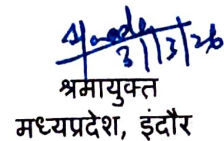 3/3/26
श्रमायुक्त
मध्यप्रदेश, इंदौर